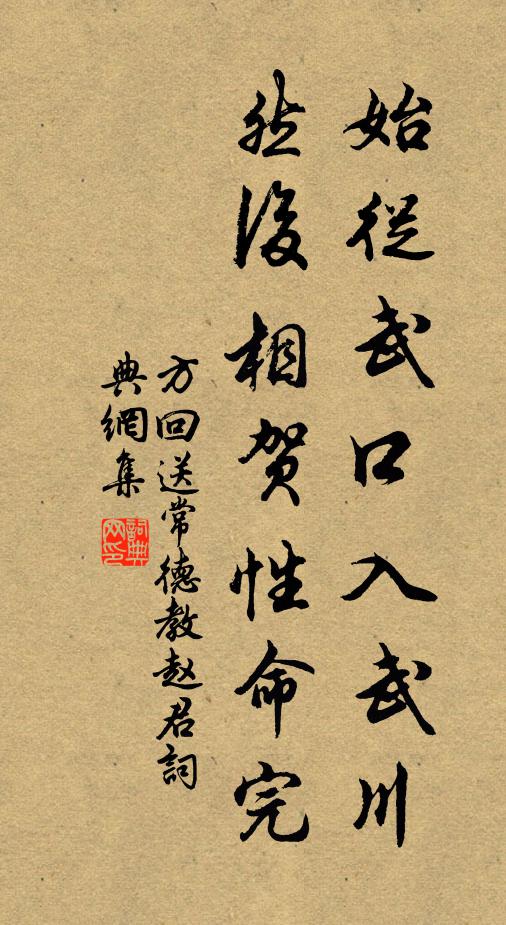 始從武口入武川
然後相賀性命完
方回送常德教赵君詞
典網集
詞典网印